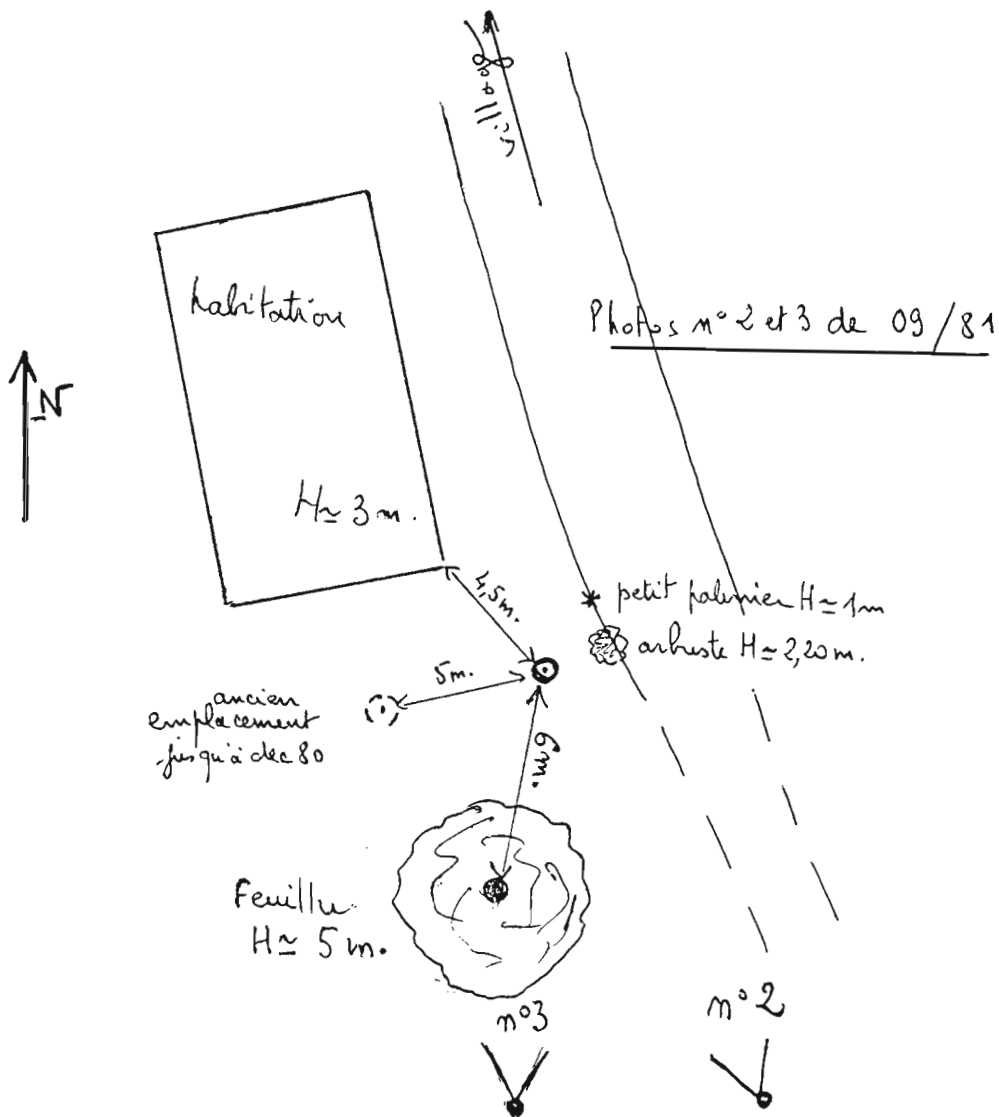 village
habitation
Photos n° 2 et 3 de 09/81
N
H≃ 3 m.
4,5m.
petit palmier H≃ 1m
arbuste H≃ 2,20 m.
5m.
ancien
emplacement
jusqu'à dec 80
6m.
Feuillu
H≃ 5 m.
n°3
n°2